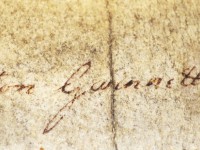 ton Gwinnett